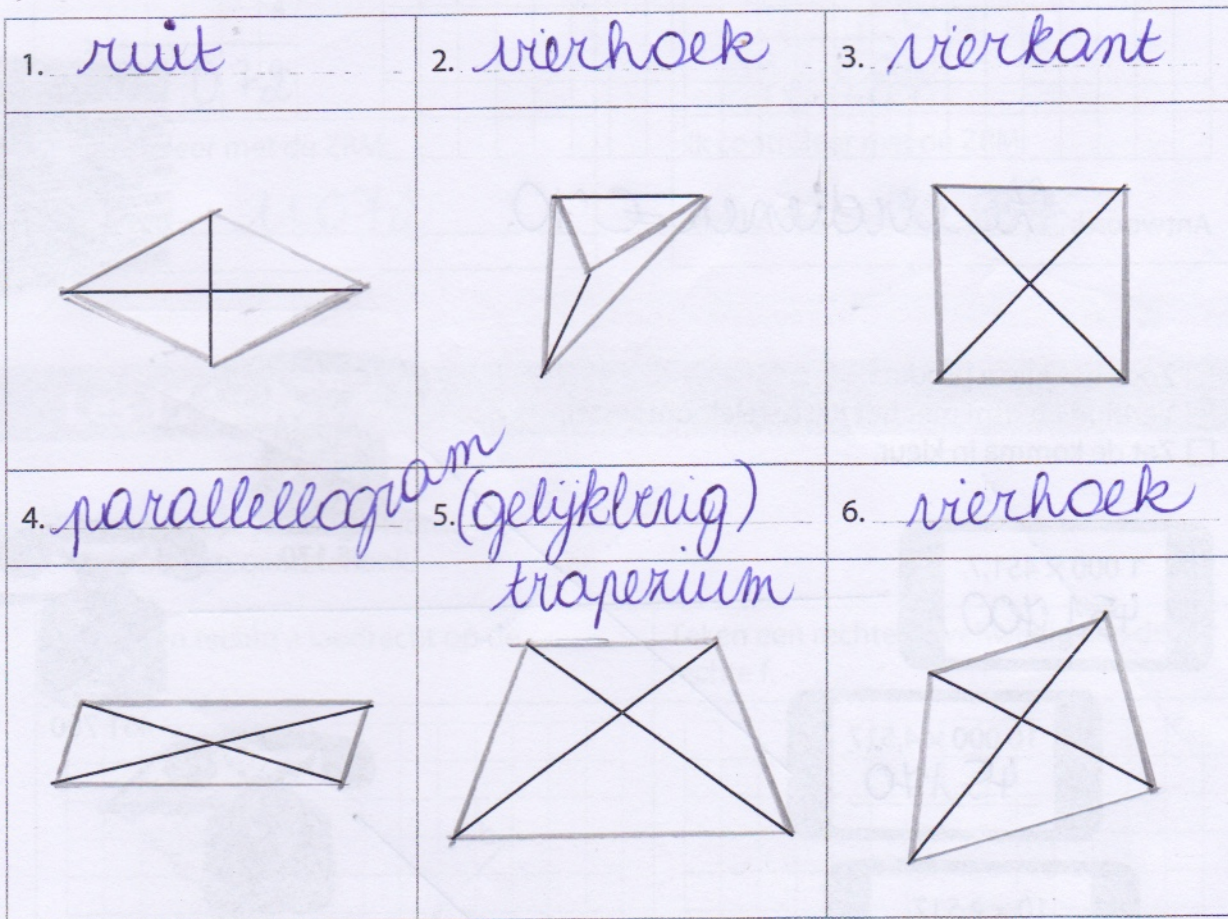 1. ruit
2. vierhoek
3. vierkant
4. parallellogram
5. (gelijkbenig)
trapezium
6. vierhoek